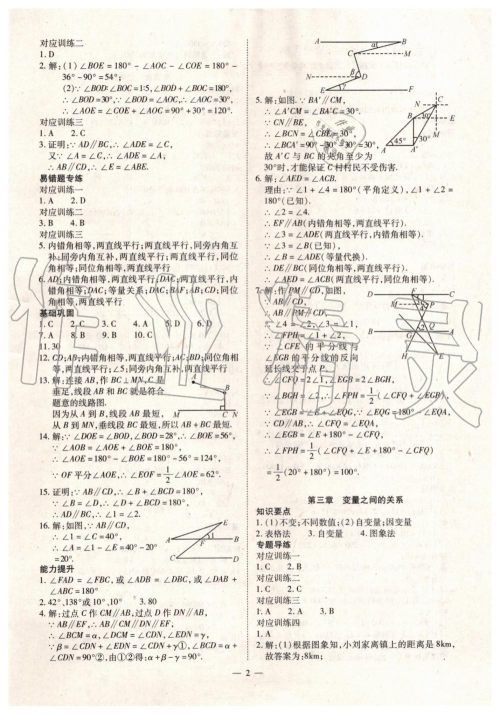 对应训练二
1. D
2. 解:(1)∠BOE=180°-∠AOC-∠COE=180°-
36°-90°=54°;
(2)∵∠BOD:∠BOC=1:5,∠BOD+∠BOC=180°,
∴∠BOD=30°,∵∠BOD=∠AOC,∴∠AOC=30°,
∴∠AOE=∠COE+∠AOC=90°+30°=120°.
对应训练三
1. A 2. C
3. 证明:∵AD∥BC,∴∠ADE=∠C,
又∵∠A=∠C,∴∠ADE=∠A;
∴AB∥CD,∴∠E=∠ABE.
易错题专练
对应训练一
1. A 2. D
对应训练二
3. B 4. B
对应训练三
5. 内错角相等,两直线平行;两直线平行,同旁内角互
补;同旁内角互补,两直线平行;两直线平行,同位
角相等;同位角相等,两直线平行
6. AD;内错角相等,两直线平行;DAC;两直线平行,内
错角相等;DAC;等量关系;DAC;BAF;AB;CD;同位
角相等,两直线平行
基础巩固
1. C 2. C 3. C 4. A 5. D 6. D
7. A 8. B 9. B 10. C
11. 30
12. CD;AB;内错角相等,两直线平行;AC;BD;同位角相
等,两直线平行;∠5;同旁内角互补,两直线平行
13. 解:连接AB,作BC⊥MN,C是
垂足,线段AB和BC就是符合
题意的线路图.
因为从A到B,线段AB最短,
从B到MN,垂线段BC最短,所以AB+BC最短.
A
B
M
C
N
14. 解:∵∠DOE=∠BOD,∠BOD=28°,∴∠BOE=56°,
∵∠AOB=∠AOE+∠BOE=180°,
∴∠AOE=180°-∠BOE=180°-56°=124°,
∵OF平分∠AOE,∴∠EOF=1/2∠AOE=62°.
15. 证明:∵AB∥CD,∴∠B+∠BCD=180°,
∵∠B=∠D,∴∠D+∠BCD=180°,
∴AD∥BC,∴∠1=∠2.
16. 解:如图,∵AB∥CD,
∴∠1=∠C=40°,
∴∠A=∠1-∠E=40°-20°
=20°.
E
A
F
1
B
C
D
能力提升
1. ∠FAD=∠FBC,或∠ADB=∠DBC,或∠DAB+
∠ABC=180°
2. 42°、138°或10°、10° 3. 80
4. 解:过点C作CM∥AB,过点D作DN∥AB,
∵AB∥EF,∴AB∥CM∥DN∥EF,
∴∠BCM=α,∠DCM=∠CDN,∠EDN=γ,
∵β=∠CDN+∠EDN=∠CDN+γ①,∠BCD=α+
∠CDN=90°②,由①②得:α+β-γ=90°.
A
B
α
C
M
N
β
D
E
γ
F
5. 解:如图.∵BA'∥CM,
∴∠A'CM=∠BA'C=30°.
∵CN∥BE,
∴∠BCN=∠CBE=30°,
∴∠BCA'=90°-30°-30°=30°,
故A'C与BC的夹角至少为
30°时,才能保证C村村民不受伤害.
N
C
M
B
E
45°
30°
A
A'
6. 解:∠AED=∠ACB.
理由:∵∠1+∠4=180°(平角定义),∠1+∠2=
180°(已知).
∴∠2=∠4.
∴EF∥AB(内错角相等,两直线平行).
∴∠3=∠ADE(两直线平行,内错角相等).
∵∠3=∠B(已知),
∴∠B=∠ADE(等量代换).
∴DE∥BC(同位角相等,两直线平行).
∴∠AED=∠ACB(两直线平行,同位角相等).
7. 解:作PM∥CD,如图,
∵AB∥CD,
∴AB∥PM∥CD,
∴∠4=∠2,∠3=∠1,
∴∠FPH=∠1+∠2,
∵∠CFE的平分线与
∠EGB的平分线的反向
延长线交于点P,
∴∠CFQ=2∠1,∠EGB=2∠BGH,
∴∠BGH=∠2,∴∠FPH=1/2(∠CFQ+∠EGB),
∵∠EGB=∠E+∠EQG,∵∠EQG=180°-∠EQA,
∵CD∥AB,∴∠CFQ=∠EQA,
∴∠EGB=∠E+180°-∠CFQ,
∴∠FPH=1/2(∠CFQ+∠E+180°-∠CFQ)
=1/2(20°+180°)=100°.
第三章 变量之间的关系
知识要点
1. (1)不变;不同数值;(2)自变量;因变量
2. 表格法 3. 自变量 4. 图象法
专题导练
对应训练一
1. C 2. B
对应训练二
1. C 2. D
对应训练三
1. A 2. A 3. B
对应训练四
1. A
2. 解:(1)根据图象知,小刘家离镇上的距离是8km,
故答案为:8km;
— 2 —